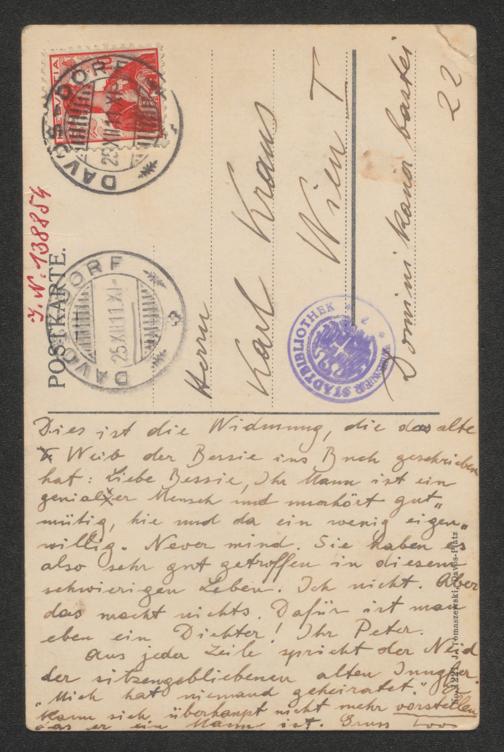 POSTKARTE.
J. N. 138854
DAVOS DORF
25.XII.11.XI-
DAVOS DORF
25.XII.11.XI-
Herrn
Karl Kraus
Wien I
Dominikanerbastei
22
STADTBIBLIOTHEK
Dies ist die Widmung, die das alte
Weib der Bessie ins Buch geschrieben
hat: Liebe Bessie, Ihr Mann ist ein
genialer Mensch und unerhört gut„
mütig, hie und da ein wenig eigen„
willig. Never mind. Sie haben es
also sehr gut getroffen in diesem
schwierigen Leben. Ich nicht. Aber
das macht nichts. Dafür ist man
eben ein Dichter! Ihr Peter.
Aus jeder Zeile spricht der Neid
der sitzengebliebenen alten Jungfer.
"Mich hat niemand geheiratet." Er
kann sich überhaupt nicht mehr vorstellen
das er ein Mann ist. Gruss Loos
J. Tomaszewski, Davos-Platz